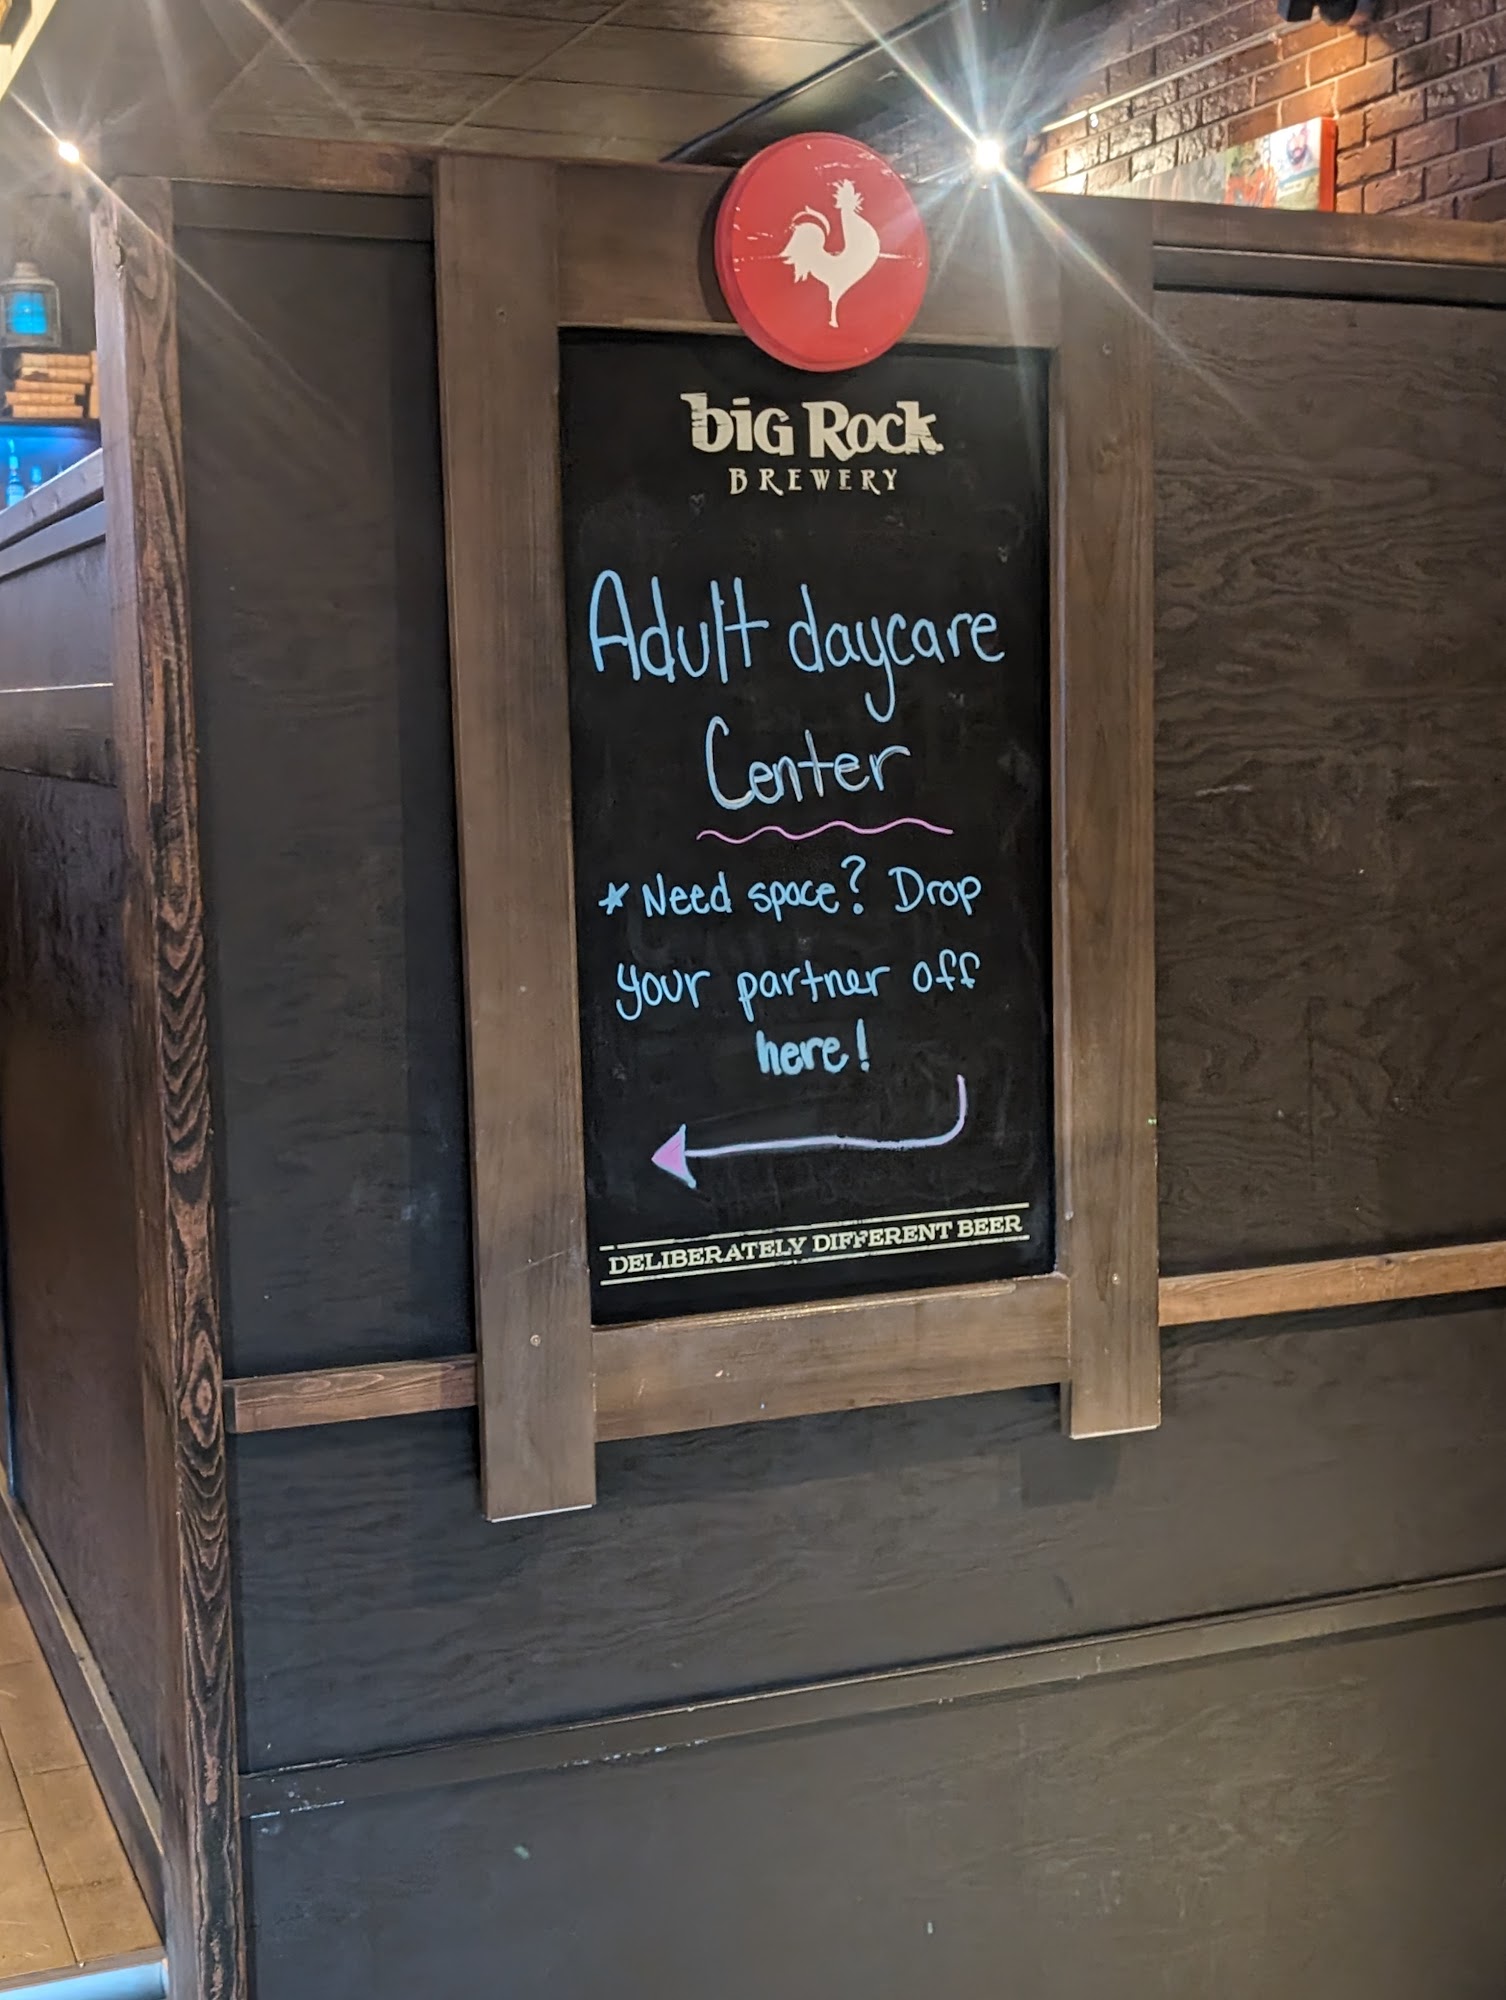 big Rock
BREWERY
Adult daycare
Center
* Need space? Drop
your partner off
here!
DELIBERATELY DIFFERENT BEER